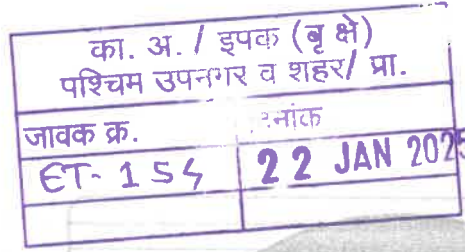 का. अ. / इपक (बृ क्षे)
पश्चिम उपनगर व शहर/ प्रा.
जावक क्र.
ET- 154
22 JAN 2025